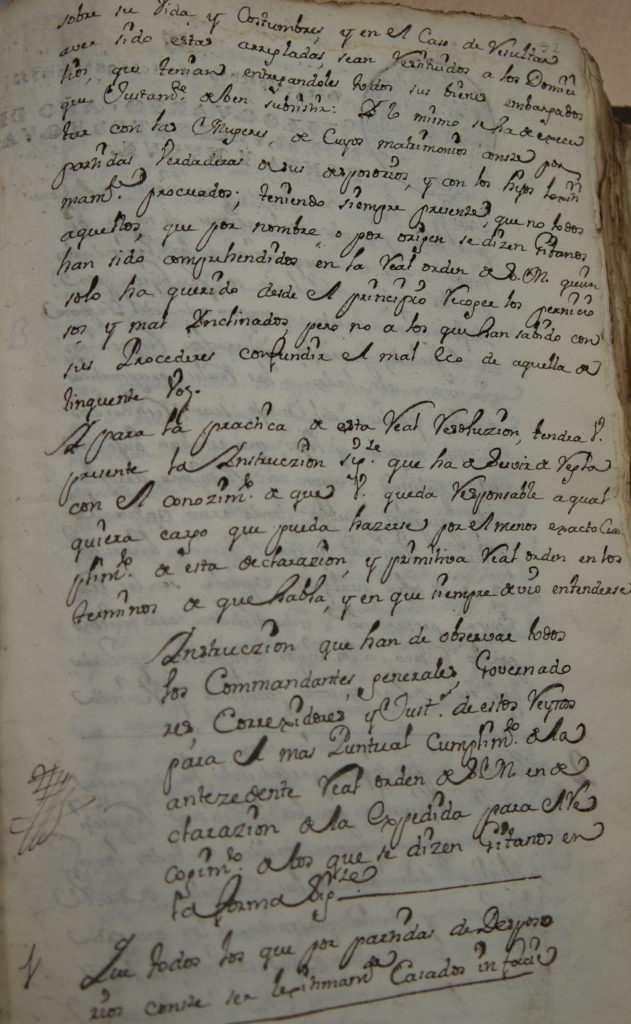 sobre su vida y Costumbres, y en el Caso de Resultar
aver sido estas arregladas, sean Restituidos a los Domici
lios, que tenian entregandoles todos sus bienes embargados
que Justam.te deben subsistir. Y lo mismo se ha de execu
tar con las Mugeres, de Cuyos matrimonios conste por
partidas Verdaderas de sus desposorios, y con los hijos lexiti
mam.te procreados; teniendo siempre presente, que no todos
aquellos, que por nombre o por origen se dizen Gitanos
han sido comprehendidos en la Real orden de S. M. quien
solo ha querido desde el principio Recoger los pernicio
sos y mal Inclinados, pero no a los que han sabido con
sus Procederes confundir el mal Eco de aquella de
linquente Voz.
Y para la practica de esta Real Resoluzion, tendra V.
presente la Instruczion sig.te que ha de servir de Regla
con el conozim.to de que V. queda Responsable a qual
quiera cargo que pueda hazerse por el menos exacto Cum
plim.to de esta declarazion, y primitiva Real orden en los
terminos de que habla, y en que siempre devio entenderse
Instruczion que han de observar todos
los Commandantes, generales, Governado
res, Correxidores y Just.s de estos Reynos
para el mas Puntual Cumplim.to de la
antezedente Real orden de S. M. en de
clarazion de la Expedida para el Re
cogim.to de los que se dizen Gitanos en
la forma Sig.te
1 Que todos los que por partidas de Desposo
rios conste ser lexitimam.te Casados in facie